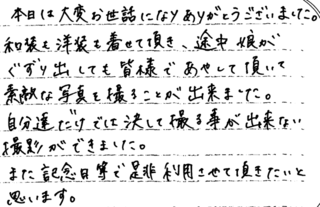 本日は大変お世話になりありがとうございました。
和装も洋装も着せて頂き、途中娘が
ぐずり出しても皆様であやして頂いて
素敵な写真を撮ることが出来ました。
自分達だけでは決して撮る事が出来ない
撮影ができました。
また記念日等で是非利用させて頂きたいと
思います。